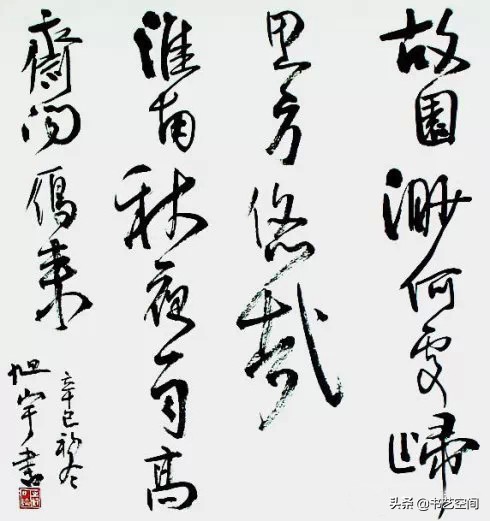 故園渺何處歸
思方悠哉
淮南秋夜雨高
齋聞鴈來
辛巳初冬
旭宇書
头条 @书艺空间